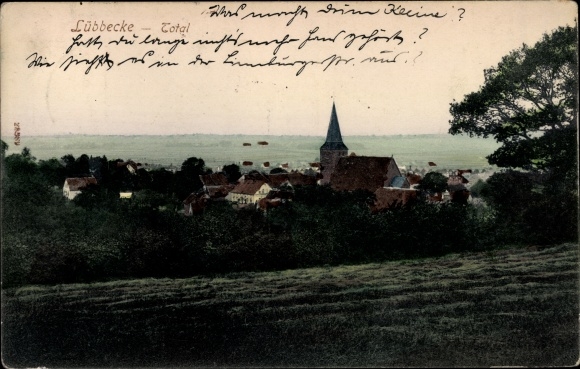 Was macht Deine Kleine?
Lübbecke – Total
Hast du lange nichts mehr von gehört?
Wie sieht es in der Limburgerstr. aus?